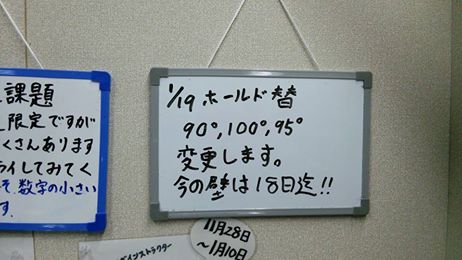 課題
限定ですが
くさんあります
ライしてみてく
そ、数字の小さい
す.
1/19 ホールド替
90°,100°,95°
変更します。
今の壁は18日迄!!
インストラクター
11月28日
〜1月10日